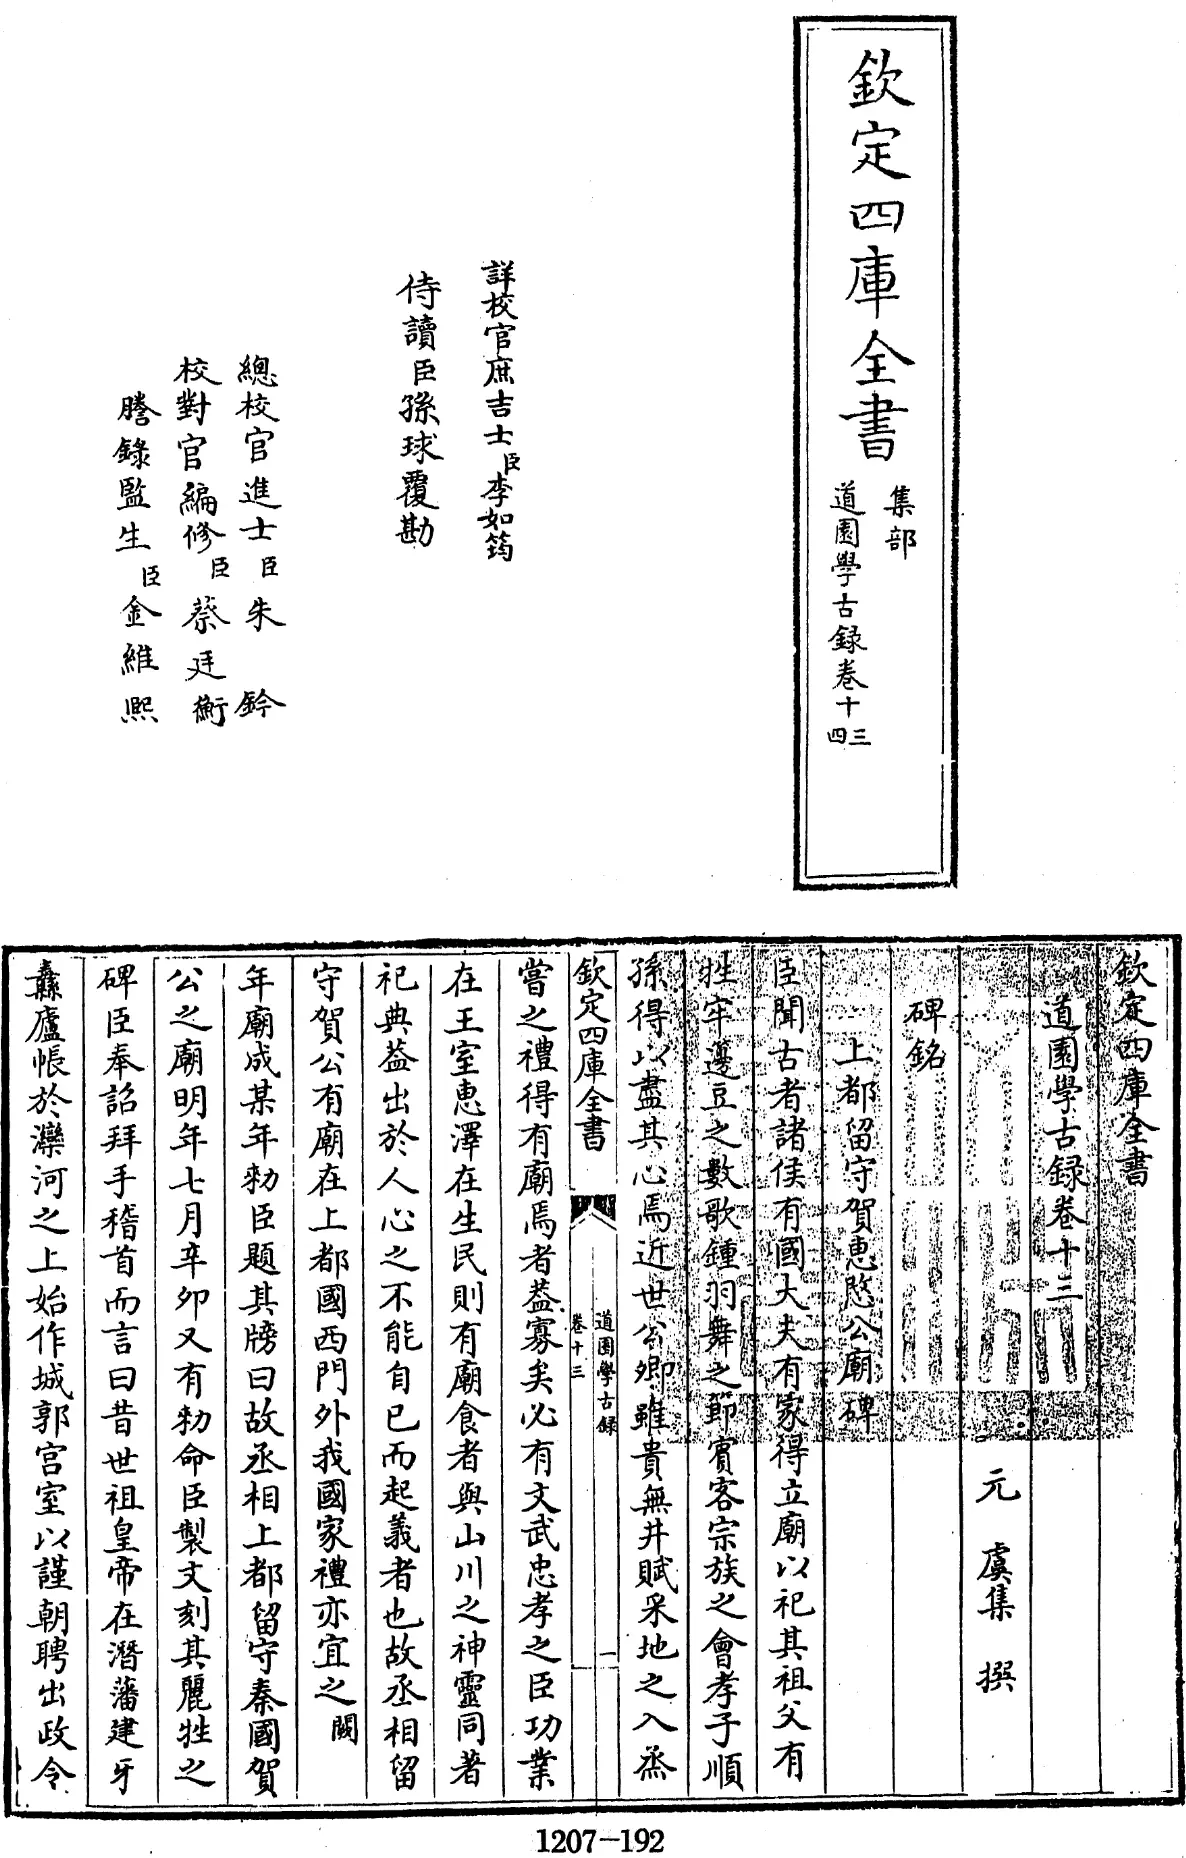 欽定四庫全書
集部
道園學古錄卷十三
四
詳校官庶吉士臣李如筠
侍讀臣孫球覆勘
總校官進士臣朱鈐
校對官編修臣蔡廷衡
謄錄監生臣金維熙
欽定四庫全書
道園學古録卷十三
元 虞集 撰
碑銘
上都留守賀惠愍公廟碑
臣聞古者諸侯有國大夫有家得立廟以祀其祖父有
牲牢籩豆之數歌鍾羽舞之節賓客宗族之會孝子順
孫得以盡其心焉近世公卿雖貴無井賦采地之入烝
欽定四庫全書
道園學古録
卷十三
一
嘗之禮得有廟焉者葢寡矣必有文武忠孝之臣功業
在王室惠澤在生民則有廟食者與山川之神靈同著
祀典葢出於人心之不能自已而起義者也故丞相留
守賀公有廟在上都國西門外我國家禮亦宜之闕
年廟成某年勑臣題其牓曰故丞相上都留守秦國賀
公之廟明年七月辛卯又有勑命臣製文刻其麗牲之
碑臣奉詔拜手稽首而言曰昔世祖皇帝在潛藩建牙
纛廬帳於灤河之上始作城郭宮室以謹朝聘出政令
1207-192